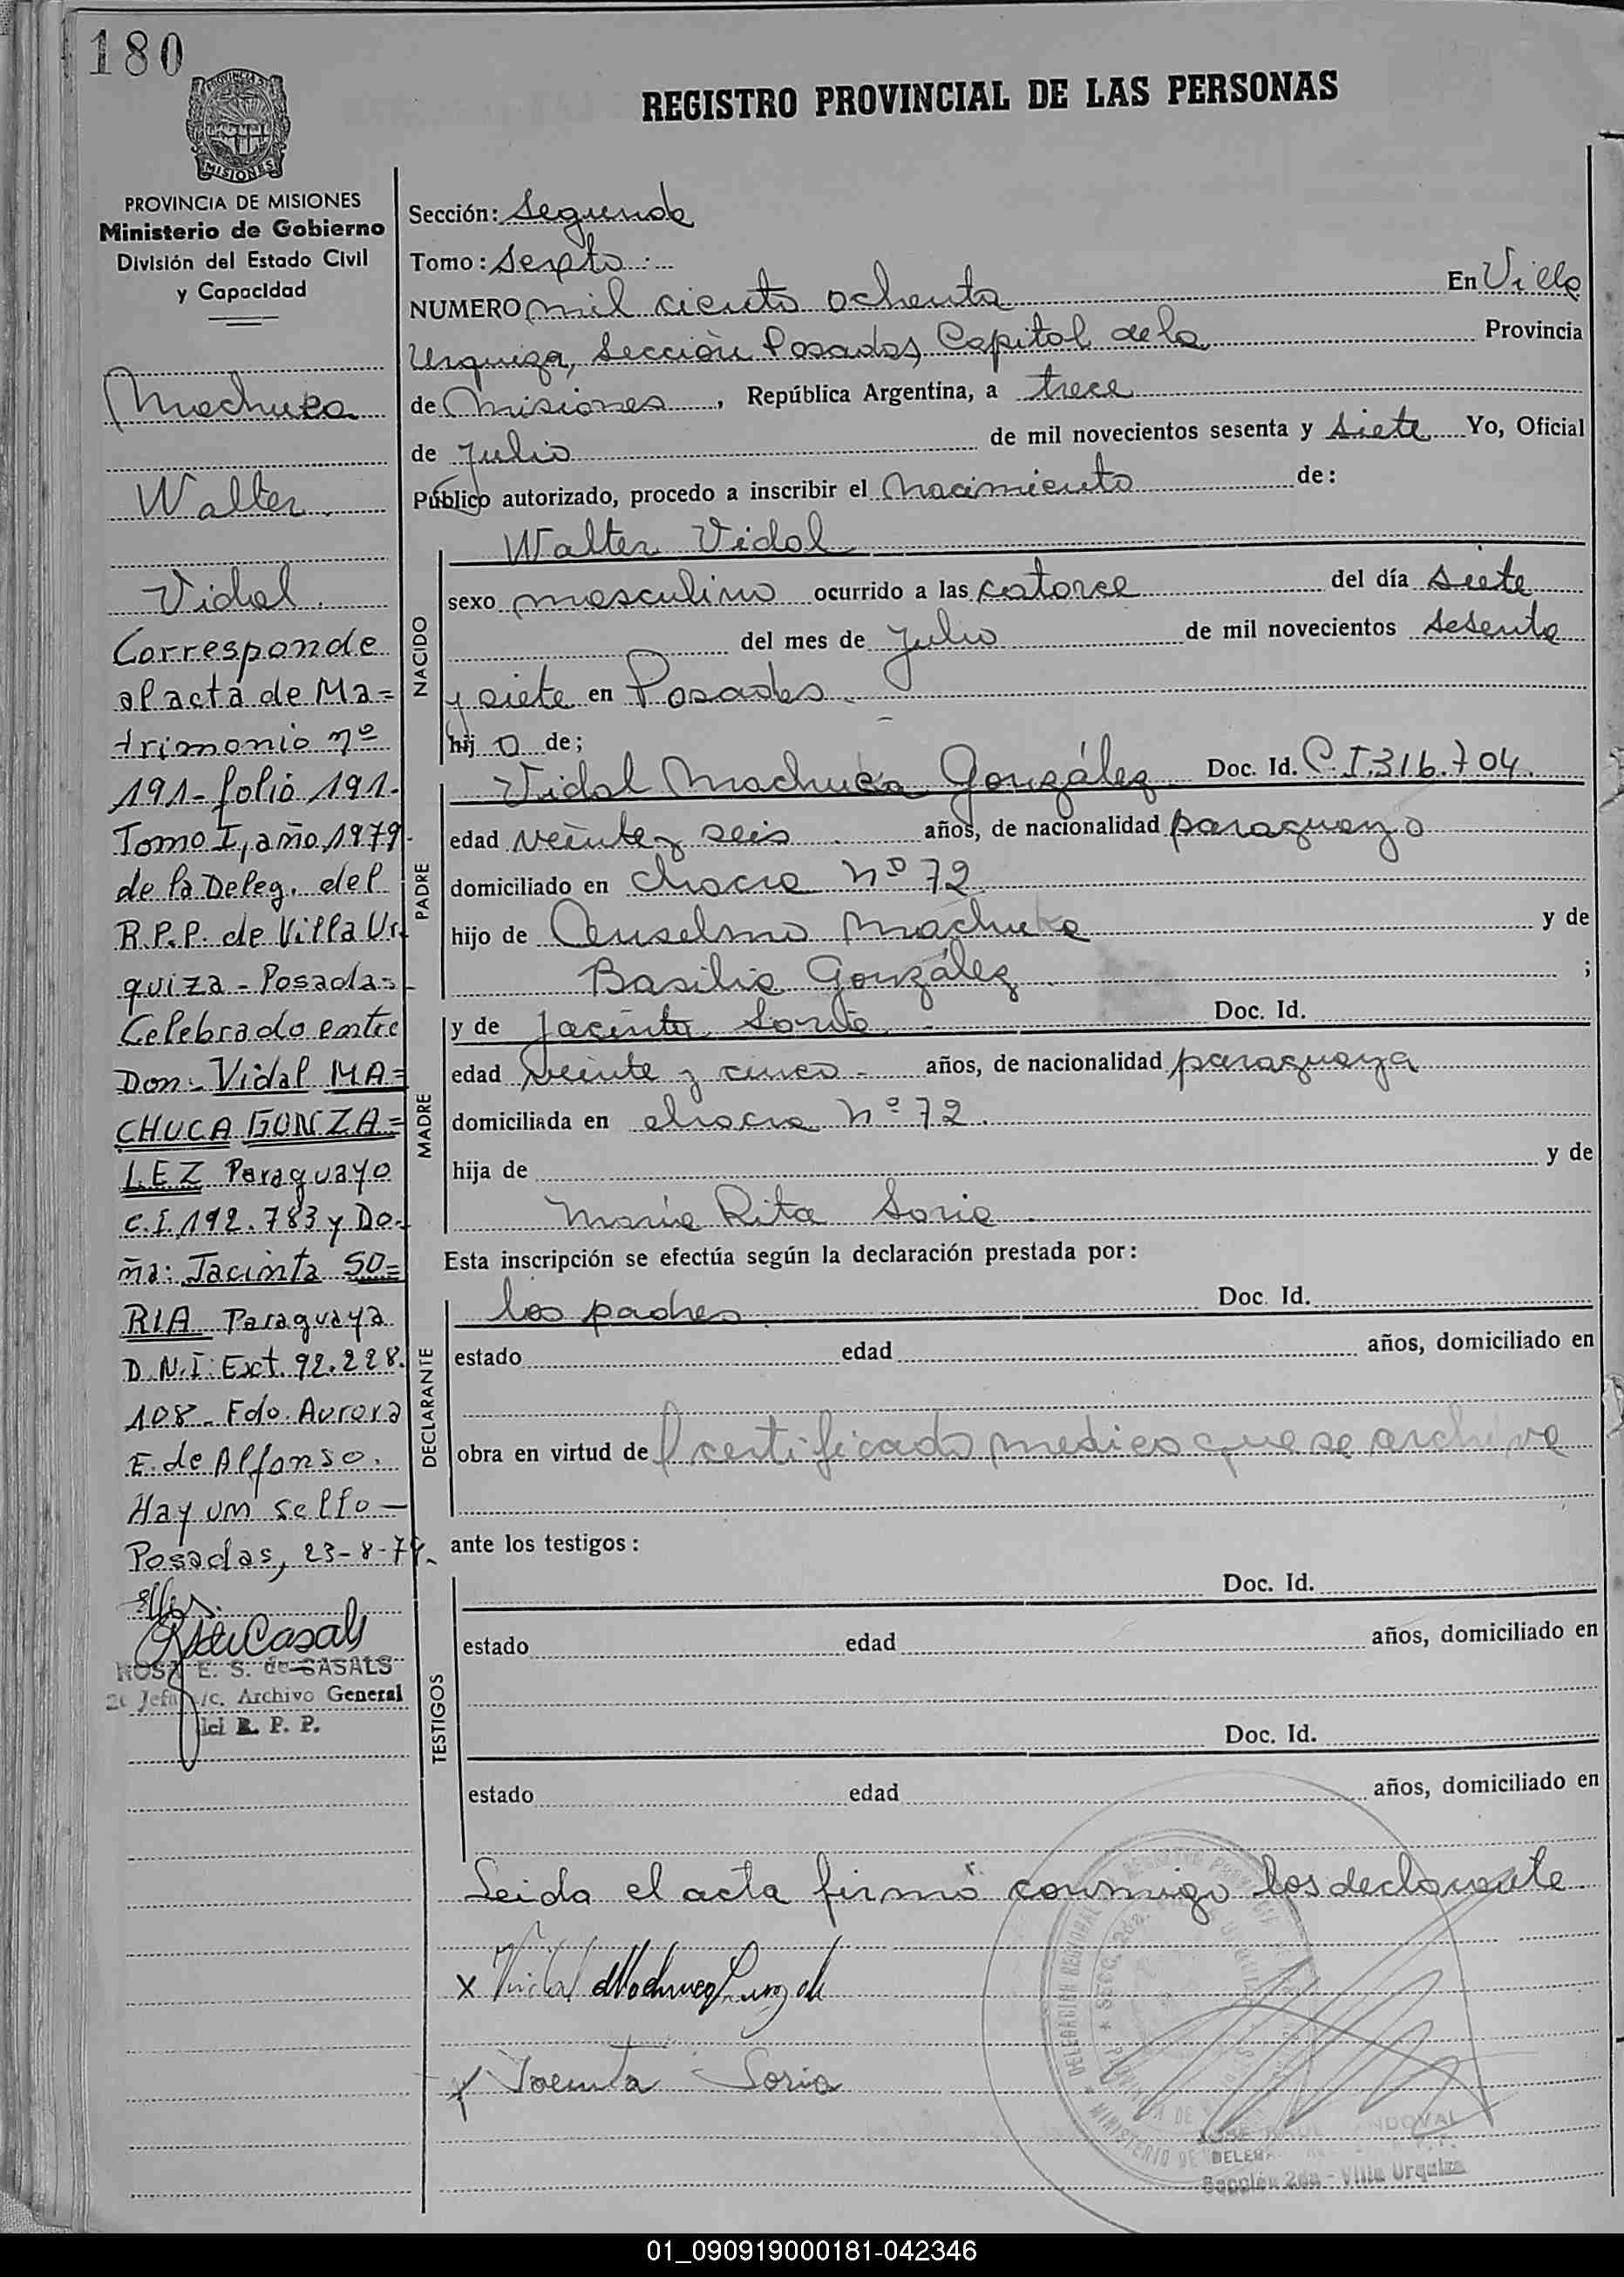 180
PROVINCIA DE
MISIONES
REGISTRO PROVINCIAL DE LAS PERSONAS
PROVINCIA DE MISIONES
Ministerio de Gobierno
División del Estado Civil
y Capacidad
Machuca
Walter
Vidal
Corresponde
al acta de Ma=
trimonio nº
191- folio 191.
Tomo I, año 1979.
de la Deleg. del
R.P.P. de Villa Ur
quiza - Posadas-
Celebrado entre
Don- Vidal MA=
CHUCA GONZA=
LEZ Paraguayo
C.I. 192.783 y Do-
ña: Jacinta SO=
RIA Paraguaya
D.N.I: Ext. 92.228.
108- Fdo. Aurora
E. de Alfonso.
Hay un sello-
Posadas, 23-8-79.
ROSA E. S. de CASALS
2º Jefa /c. Archivo General
del R. P. P.
Sección: Segunda
Tomo: Sexto
NUMERO mil ciento ochenta En Villa
Urquiza, Sección Posadas, Capital de la Provincia
de Misiones, República Argentina, a trece
de Julio de mil novecientos sesenta y siete Yo, Oficial
Público autorizado, procedo a inscribir el nacimiento de:
NACIDO
Walter Vidal
sexo masculino ocurrido a las catorce del día siete
del mes de Julio de mil novecientos sesenta
y siete en Posadas.
hijo de;
PADRE
Vidal Machuca González Doc. Id. C.I.316.704.
edad veinte y seis años, de nacionalidad paraguayo
domiciliado en chacra Nº 72
hijo de Anselmo Machuca y de
Basilia González ;
MADRE
y de Jacinta Soria. Doc. Id.
edad veinte y cinco - años, de nacionalidad paraguaya
domiciliada en chacra Nº 72.
hija de y de
María Rita Soria
Esta inscripción se efectúa según la declaración prestada por:
DECLARANTE
los padres Doc. Id.
estado edad años, domiciliado en
obra en virtud de certificado medico que se archiva
ante los testigos:
TESTIGOS
Doc. Id.
estado edad años, domiciliado en
Doc. Id.
estado edad años, domiciliado en
Leida el acta firmó conmigo los declarante
x Vidal Machuca
x Jacinta Soria
DELEGACION REGIONAL
MINISTERIO DE
SANDOVAL
Sección 2da - Villa Urquiza
01_090919000181-042346